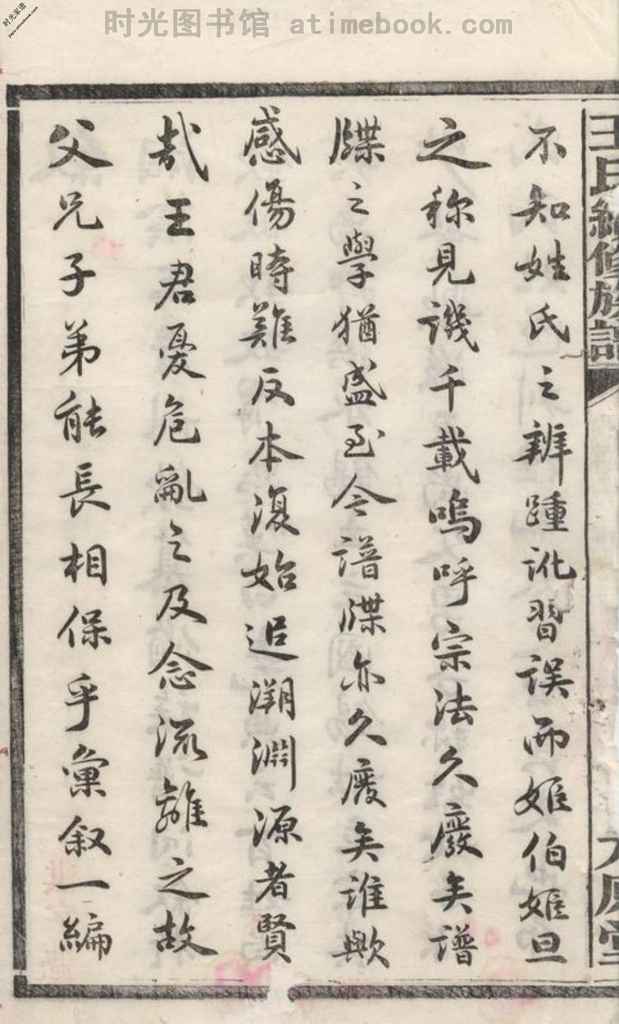 时光图书馆 atimebook.com
时光家谱
www.atimebook.com
王氏續修族譜
不知姓氏之辨踵訛習誤而姬伯姬旦
之称見譏千載嗚呼宗法久廢矣譜
牒之學猶盛至今譜牒亦久廢矣誰歟
感傷時難反本復始追溯淵源者賢
哉王君憂危亂之及念流離之故
父兄子弟能長相保乎彙叙一編